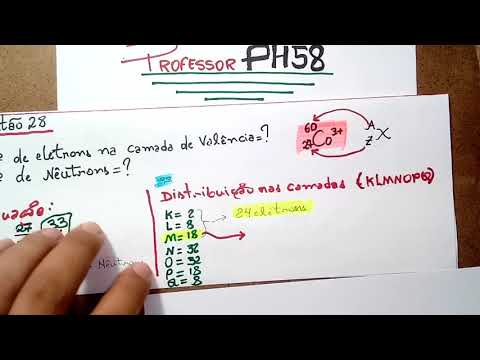 PROFESSOR PH58
tão 28
e de eletrons na camada de Valência=?
e de Nêutrons=?
60 Co 3+
27
A
Z X
27 33
Nêutrons
Distribuição nas camadas (KLMNOPQ)
K= 2
L= 8
M= 18
N= 32
O= 32
P= 18
Q= 8
24 elétrons